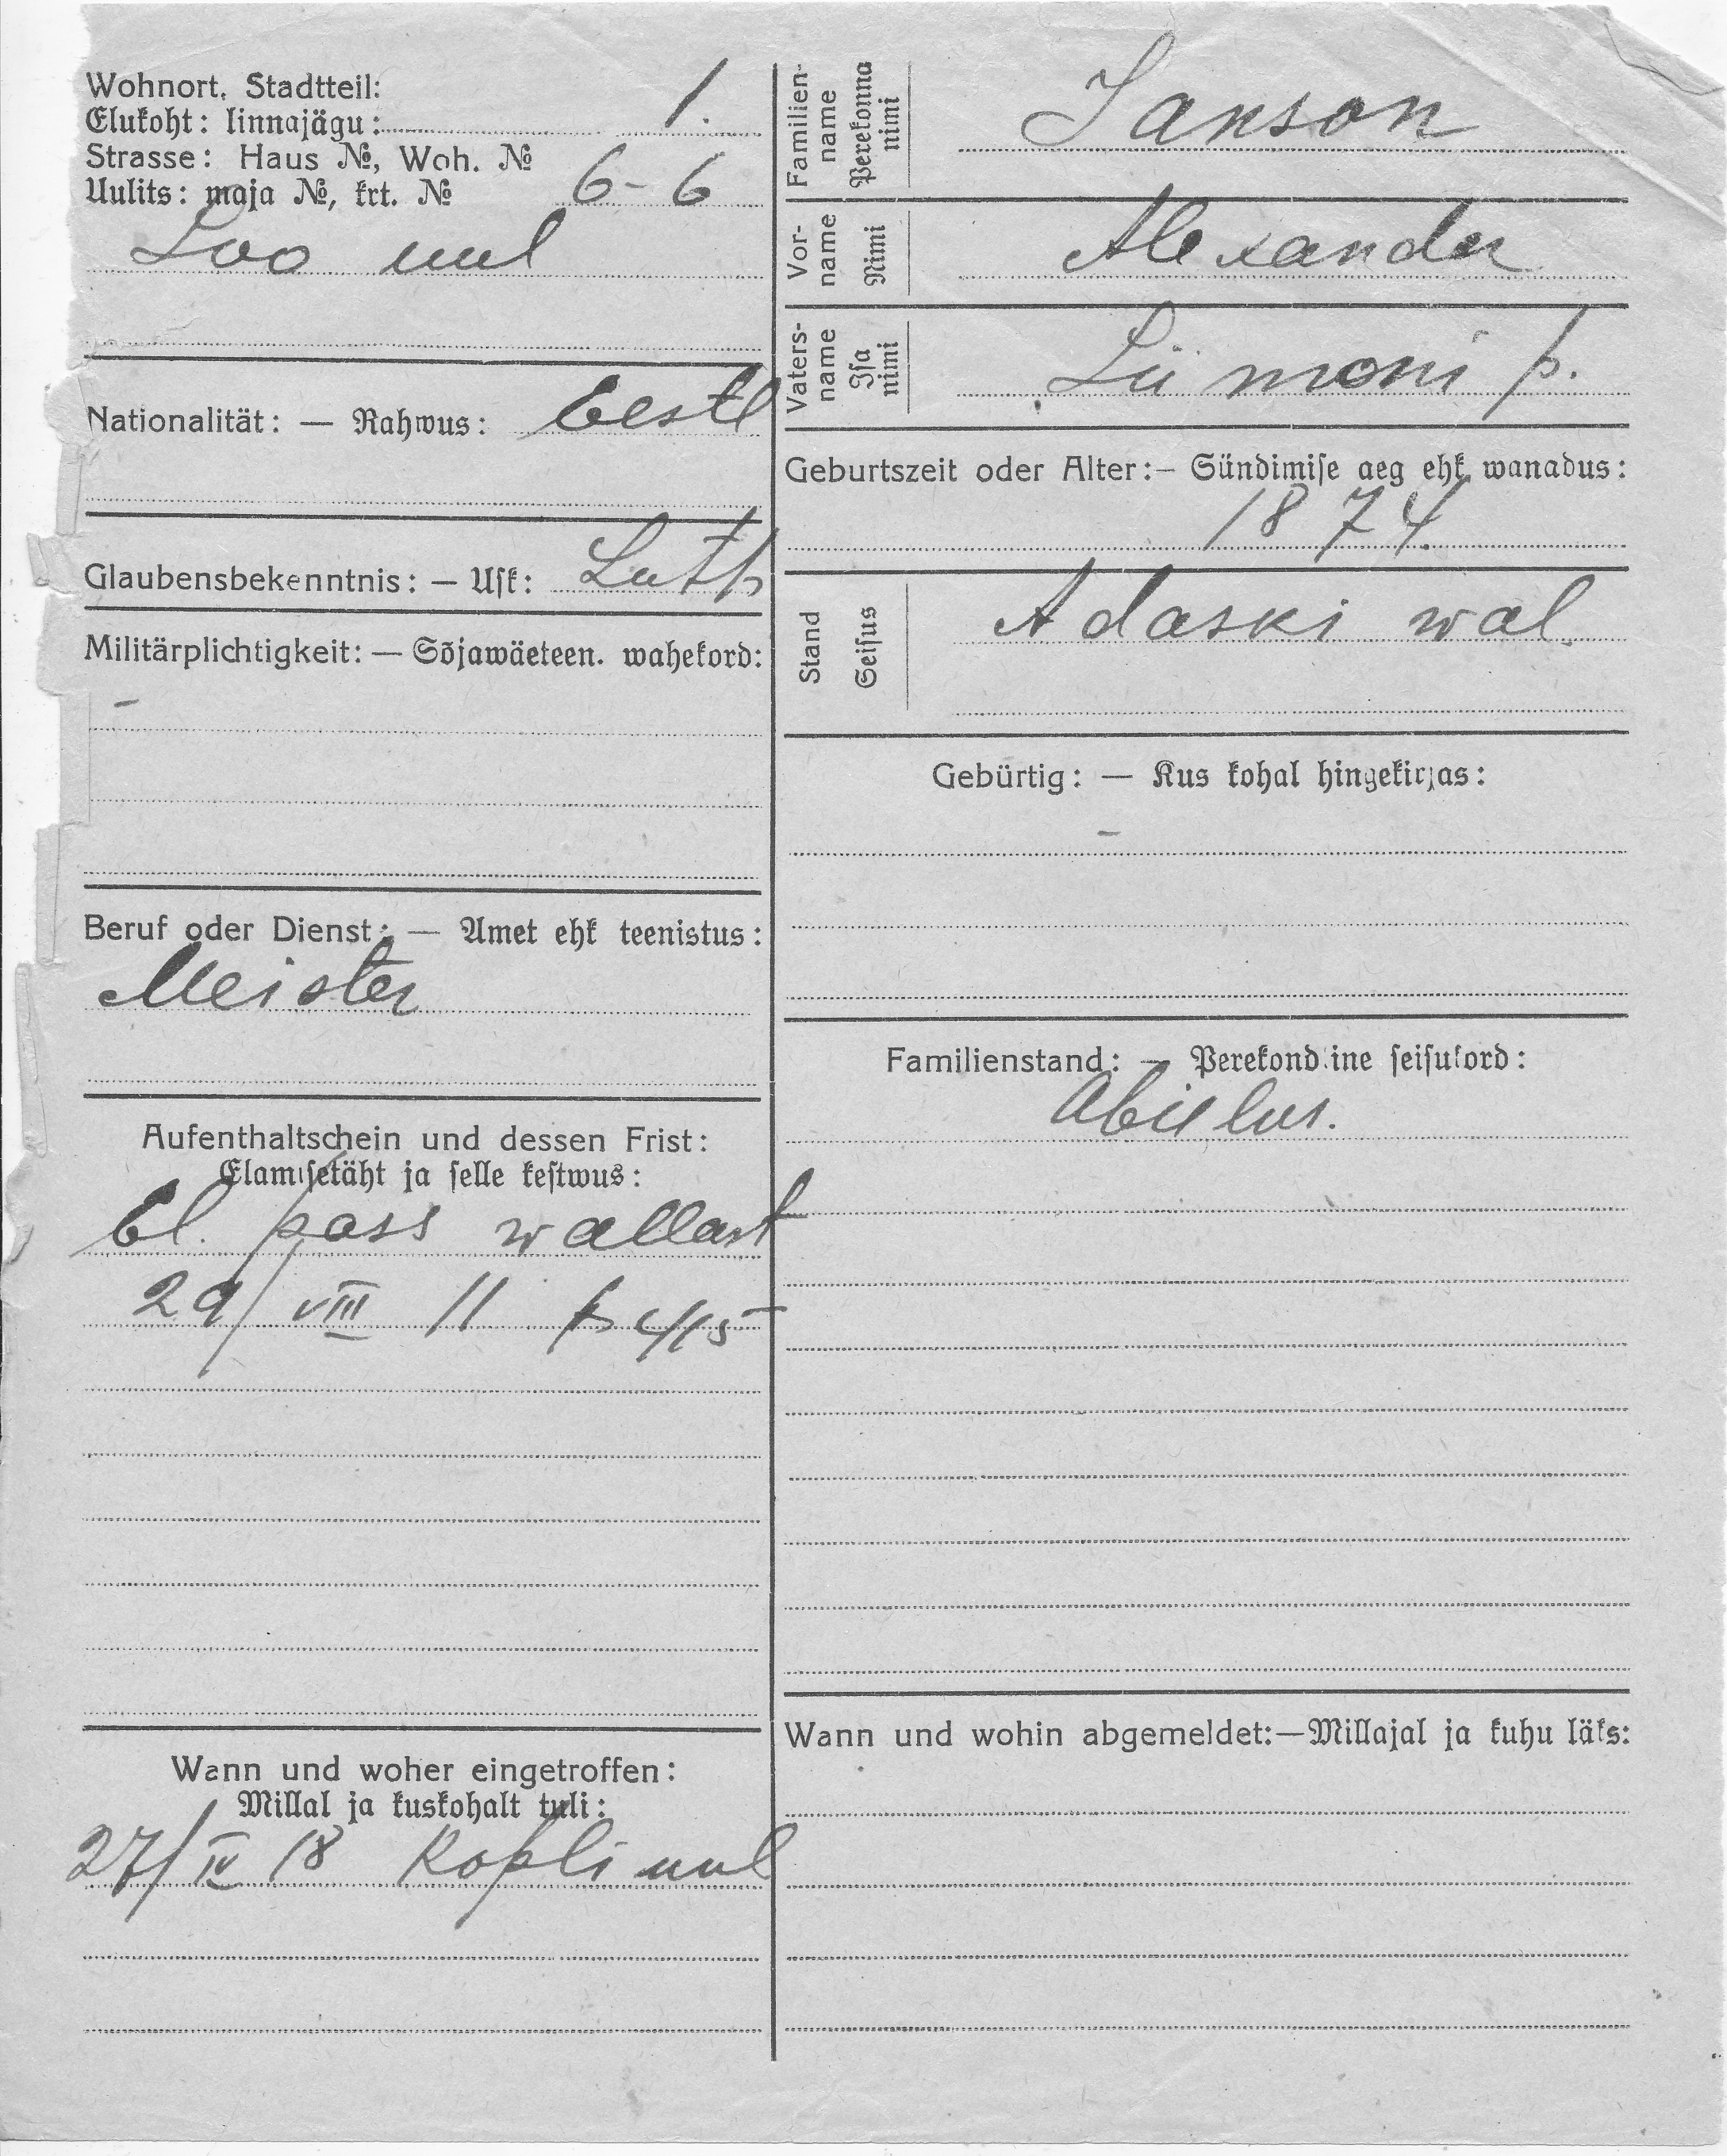 Wohnort. Stadtteil:
Elukoht: linnajägu: 1.
Strasse: Haus №, Woh. №
Uulits: maja №, krt. № 6-6
Loo uul
Nationalität: — Rahwus: Eestl
Glaubensbekenntnis: — Usk: Luth
Militärplichtigkeit: — Sõjawäeteen. wahekord:
-
Beruf oder Dienst: — Amet ehk teenistus:
Meister
Aufenthaltschein und dessen Frist:
Elamisetäht ja selle kestwus:
El. pass wallast
29/VIII 11 № 415
Wann und woher eingetroffen:
Millal ja kuskohalt tuli:
27/IV 18 Kopli uul
Familien-
name
Perekonna
nimi
Janson
Vor-
name
Nimi
Alexander
Vaters-
name
Isa
nimi
Siimoni p.
Geburtszeit oder Alter:— Sündimise aeg ehk wanadus:
1874
Stand
Seisus
Adaski wal.
Gebürtig: — Kus kohal hingekirjas:
-
Familienstand: — Perekondline seisukord:
Abielus.
Wann und wohin abgemeldet:—Millajal ja kuhu läks: